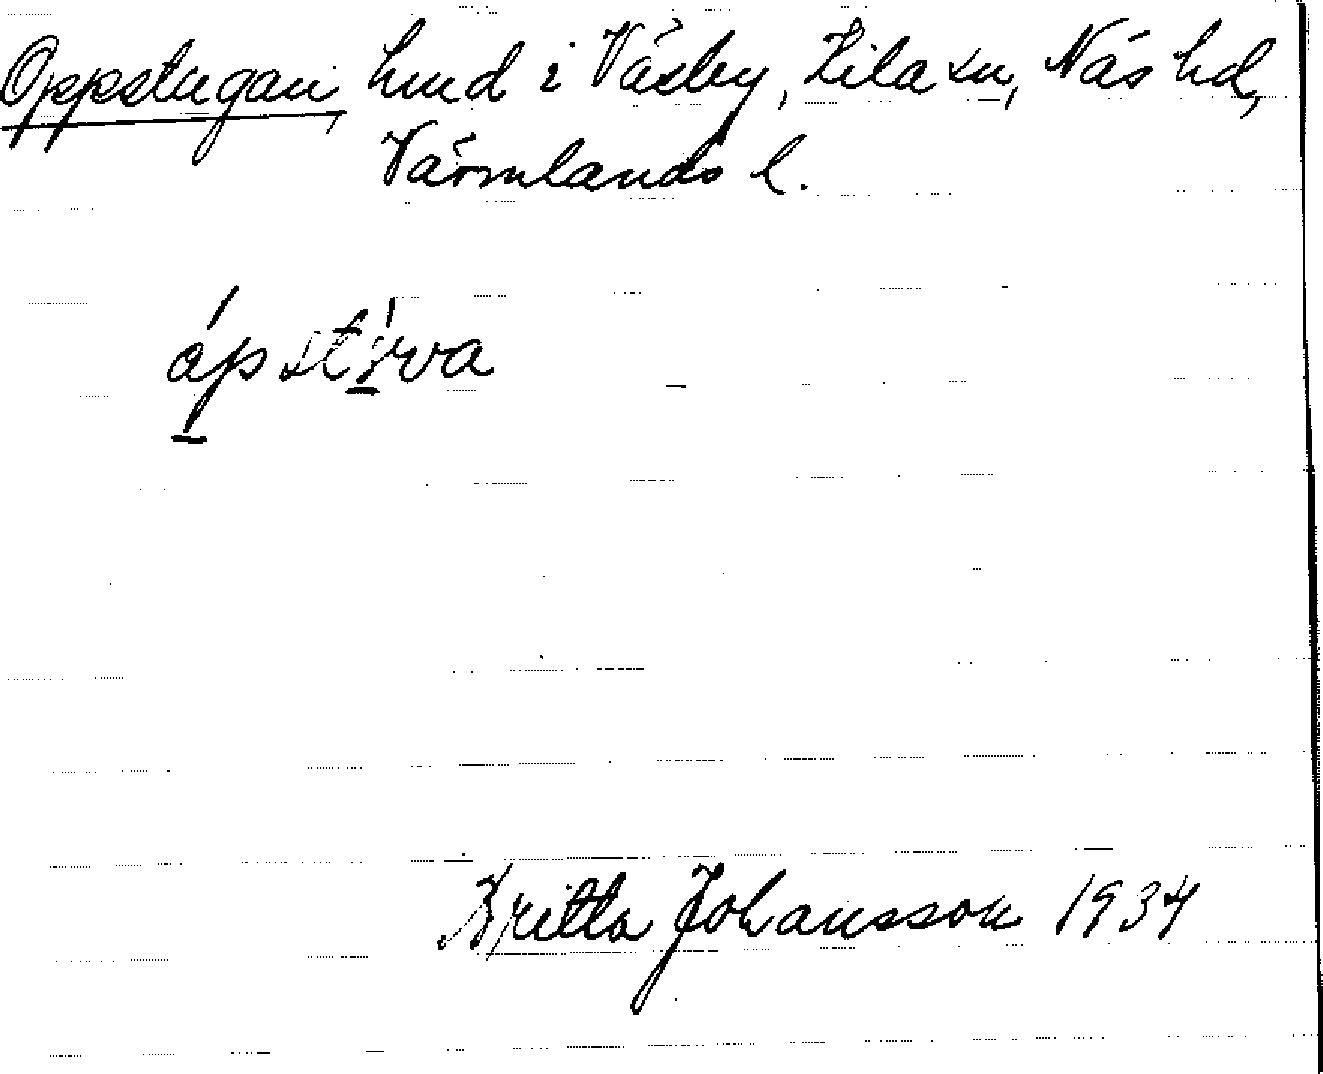 Oppstugan, hmd i Väsby, Lila sn, Näs hd,
Värmlands l.
Britta Johansson 1934